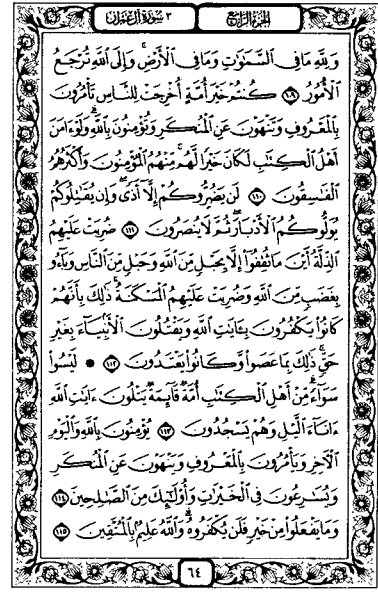 ٣ سورة آل عمران
الجزء الرابع
وَلِلَّهِ مَا فِي السَّمَٰوَٰتِ وَمَا فِي الْأَرْضِ ۚ وَإِلَى اللَّهِ تُرْجَعُ
الْأُمُورُ ١٠٩ كُنتُمْ خَيْرَ أُمَّةٍ أُخْرِجَتْ لِلنَّاسِ تَأْمُرُونَ
بِالْمَعْرُوفِ وَتَنْهَوْنَ عَنِ الْمُنكَرِ وَتُؤْمِنُونَ بِاللَّهِ ۗ وَلَوْ ءَامَنَ
أَهْلُ الْكِتَٰبِ لَكَانَ خَيْرًا لَّهُم ۚ مِّنْهُمُ الْمُؤْمِنُونَ وَأَكْثَرُهُمُ
الْفَٰسِقُونَ ١١٠ لَن يَضُرُّوكُمْ إِلَّا أَذًى ۖ وَإِن يُقَٰتِلُوكُمْ
يُوَلُّوكُمُ الْأَدْبَارَ ثُمَّ لَا يُنصَرُونَ ١١١ ضُرِبَتْ عَلَيْهِمُ
الذِّلَّةُ أَيْنَ مَا ثُقِفُوا إِلَّا بِحَبْلٍ مِّنَ اللَّهِ وَحَبْلٍ مِّنَ النَّاسِ وَبَآءُو
بِغَضَبٍ مِّنَ اللَّهِ وَضُرِبَتْ عَلَيْهِمُ الْمَسْكَنَةُ ۚ ذَٰلِكَ بِأَنَّهُمْ
كَانُوا يَكْفُرُونَ بِـَٔايَٰتِ اللَّهِ وَيَقْتُلُونَ الْأَنۢبِيَآءَ بِغَيْرِ
حَقٍّ ۚ ذَٰلِكَ بِمَا عَصَوا وَّكَانُوا يَعْتَدُونَ ١١٢ ۞ لَيْسُوا
سَوَآءً ۗ مِّنْ أَهْلِ الْكِتَٰبِ أُمَّةٌ قَآئِمَةٌ يَتْلُونَ ءَايَٰتِ اللَّهِ
ءَانَآءَ الَّيْلِ وَهُمْ يَسْجُدُونَ ١١٣ يُؤْمِنُونَ بِاللَّهِ وَالْيَوْمِ
الْآخِرِ وَيَأْمُرُونَ بِالْمَعْرُوفِ وَيَنْهَوْنَ عَنِ الْمُنكَرِ
وَيُسَٰرِعُونَ فِي الْخَيْرَٰتِ وَأُولَٰٓئِكَ مِنَ الصَّٰلِحِينَ ١١٤
وَمَا يَفْعَلُوا مِنْ خَيْرٍ فَلَن يُكْفَرُوهُ ۗ وَاللَّهُ عَلِيمٌۢ بِالْمُتَّقِينَ ١١٥
٦٤